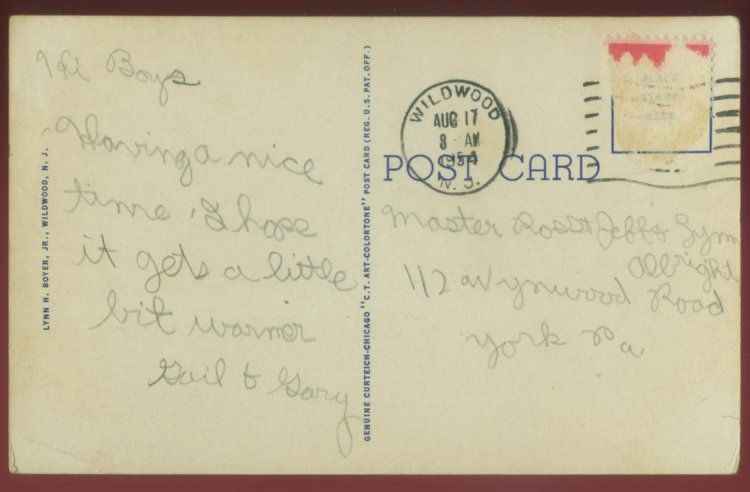 Hi Boys
Having a nice
time. I hope
it gets a little
bit warmer
Gail & Gary
LYNN H. BOYER, JR., WILDWOOD, N. J.
GENUINE CURTEICH-CHICAGO "C.T. ART-COLORTONE" POST CARD (REG. U.S. PAT. OFF.)
WILDWOOD
AUG 17
8 AM
1954
N. J.
PLACE
STAMP
HERE
POST CARD
Master Ross Jeff &
Albright
112 Wynwood Road
York Pa.